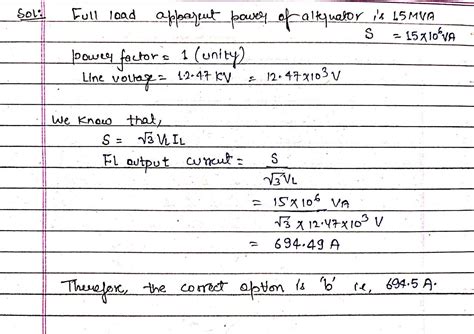 Sol:- Full load apparent power of alternator is 15MVA
S = 15×10⁶VA
power factor = 1 (unity)
Line voltage = 12.47 KV = 12.47×10³ V
We know that,
S = √3 VL IL
FL output current = S
√3 VL
= 15×10⁶ VA
√3 × 12.47×10³ V
= 694.49 A
Therefore, the correct option is 'b' i.e, 694.5 A.